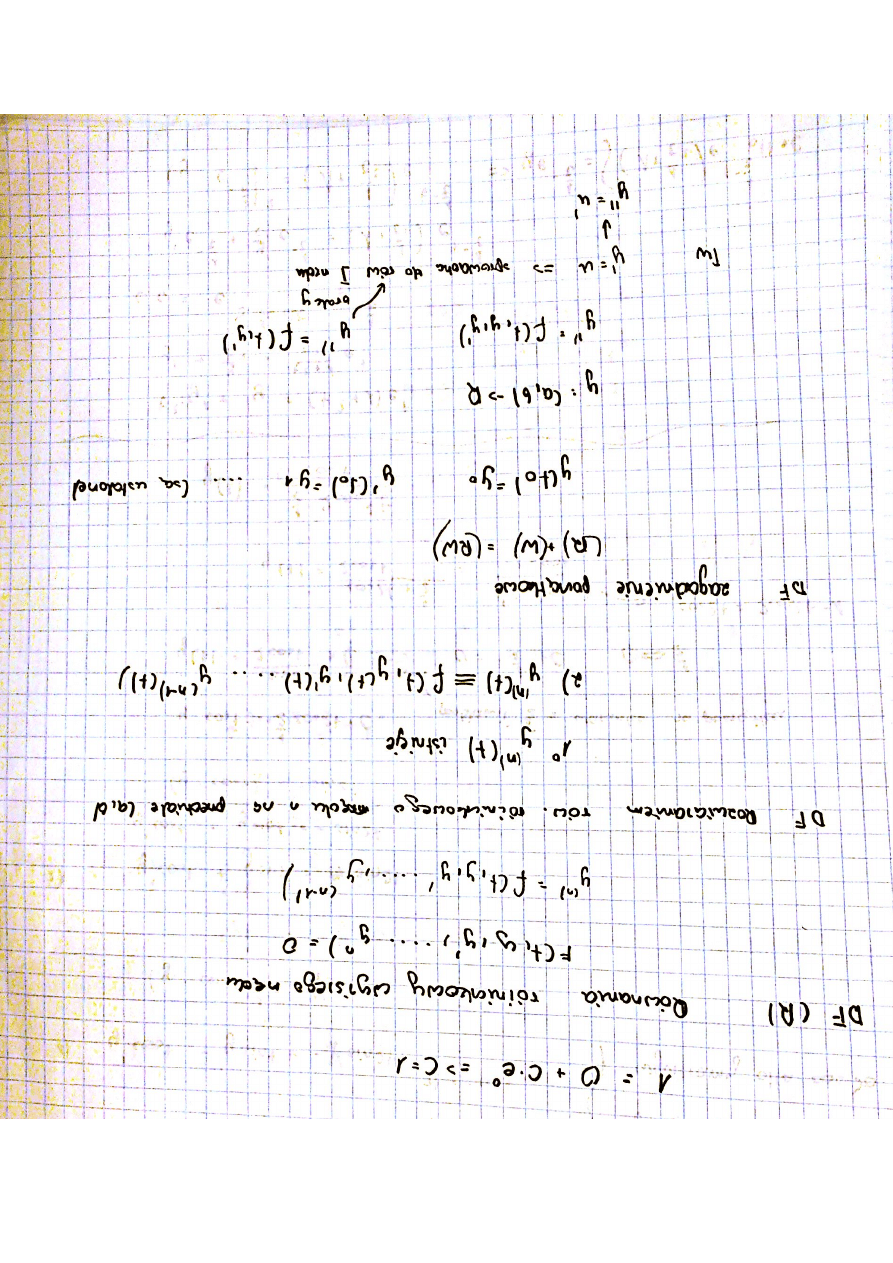 1 = 0 + C·e⁰ => C=1
DF (R) Równania różniczkowy wyższego rzędu
F(t, y, y', ..... yⁿ) = 0
y⁽ⁿ⁾ = f(t, y, y', ....., y⁽ⁿ⁻¹⁾)
DF Rozwiązaniem rów. różniczkowego rzędu n na przedziale (a,b)
1° y⁽ⁿ⁾(t) istnieje
2) y⁽ⁿ⁾(t) ≡ f(t, y(t), y'(t) ..... y⁽ⁿ⁻¹⁾(t))
DF zagadnienie początkowe
(R) + (W) = (RW)
y(t0) = y0 y'(t0) = y1 ..... (są ustalone)
y: (a,b) -> R
y'' = f(t, y, y') y'' = f(t, y')
brak y
TW y' = u => sprowadzone do rów I rzędu
↓
y'' = u'